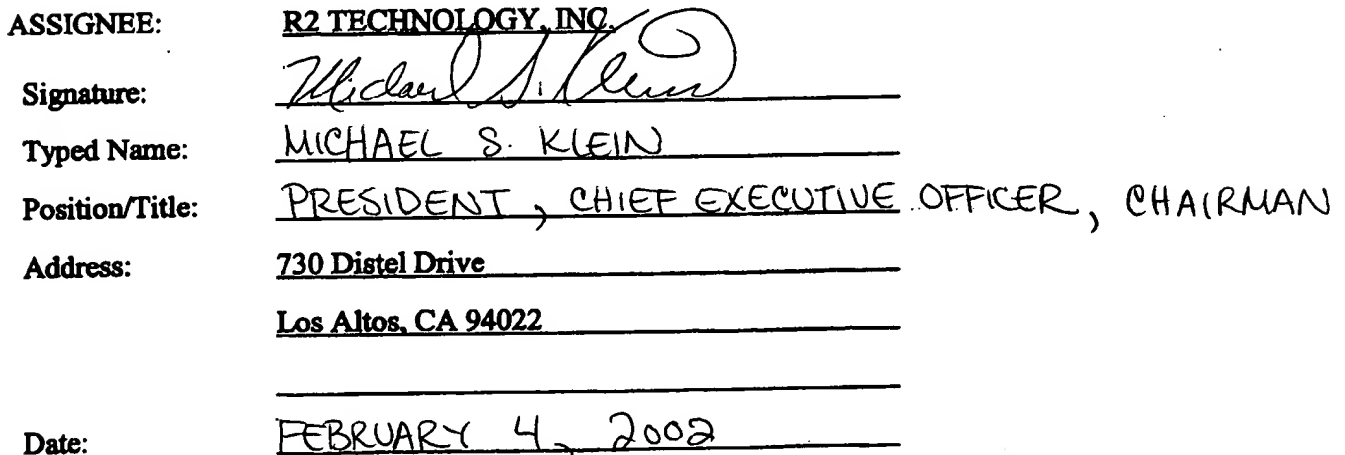 ASSIGNEE: R2 TECHNOLOGY, INC.
Signature: Michael S. Klein
Typed Name: MICHAEL S. KLEIN
Position/Title: PRESIDENT, CHIEF EXECUTIVE OFFICER, CHAIRMAN
Address: 730 Distel Drive
Los Altos, CA 94022
Date: FEBRUARY 4, 2002